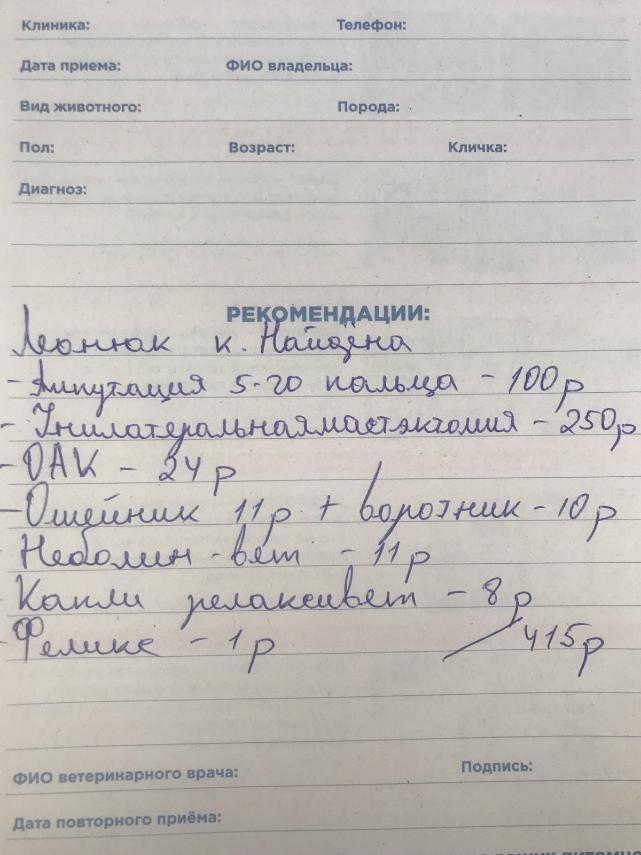 Клиника: Телефон:
Дата приема: ФИО владельца:
Вид животного: Порода:
Пол: Возраст: Кличка:
Диагноз:
РЕКОМЕНДАЦИИ:
Леонюк к. Найдена
- Ампутация 5-го пальца - 100р
- Унилатеральнаямастэктомия - 250р
- ОАК - 24р
- Ошейник 11р + воротник - 10р
- Неболин-вет - 11р
- Капли релаксивет - 8р
- Феликс - 1р 415р
ФИО ветеринарного врача: Подпись:
Дата повторного приёма: